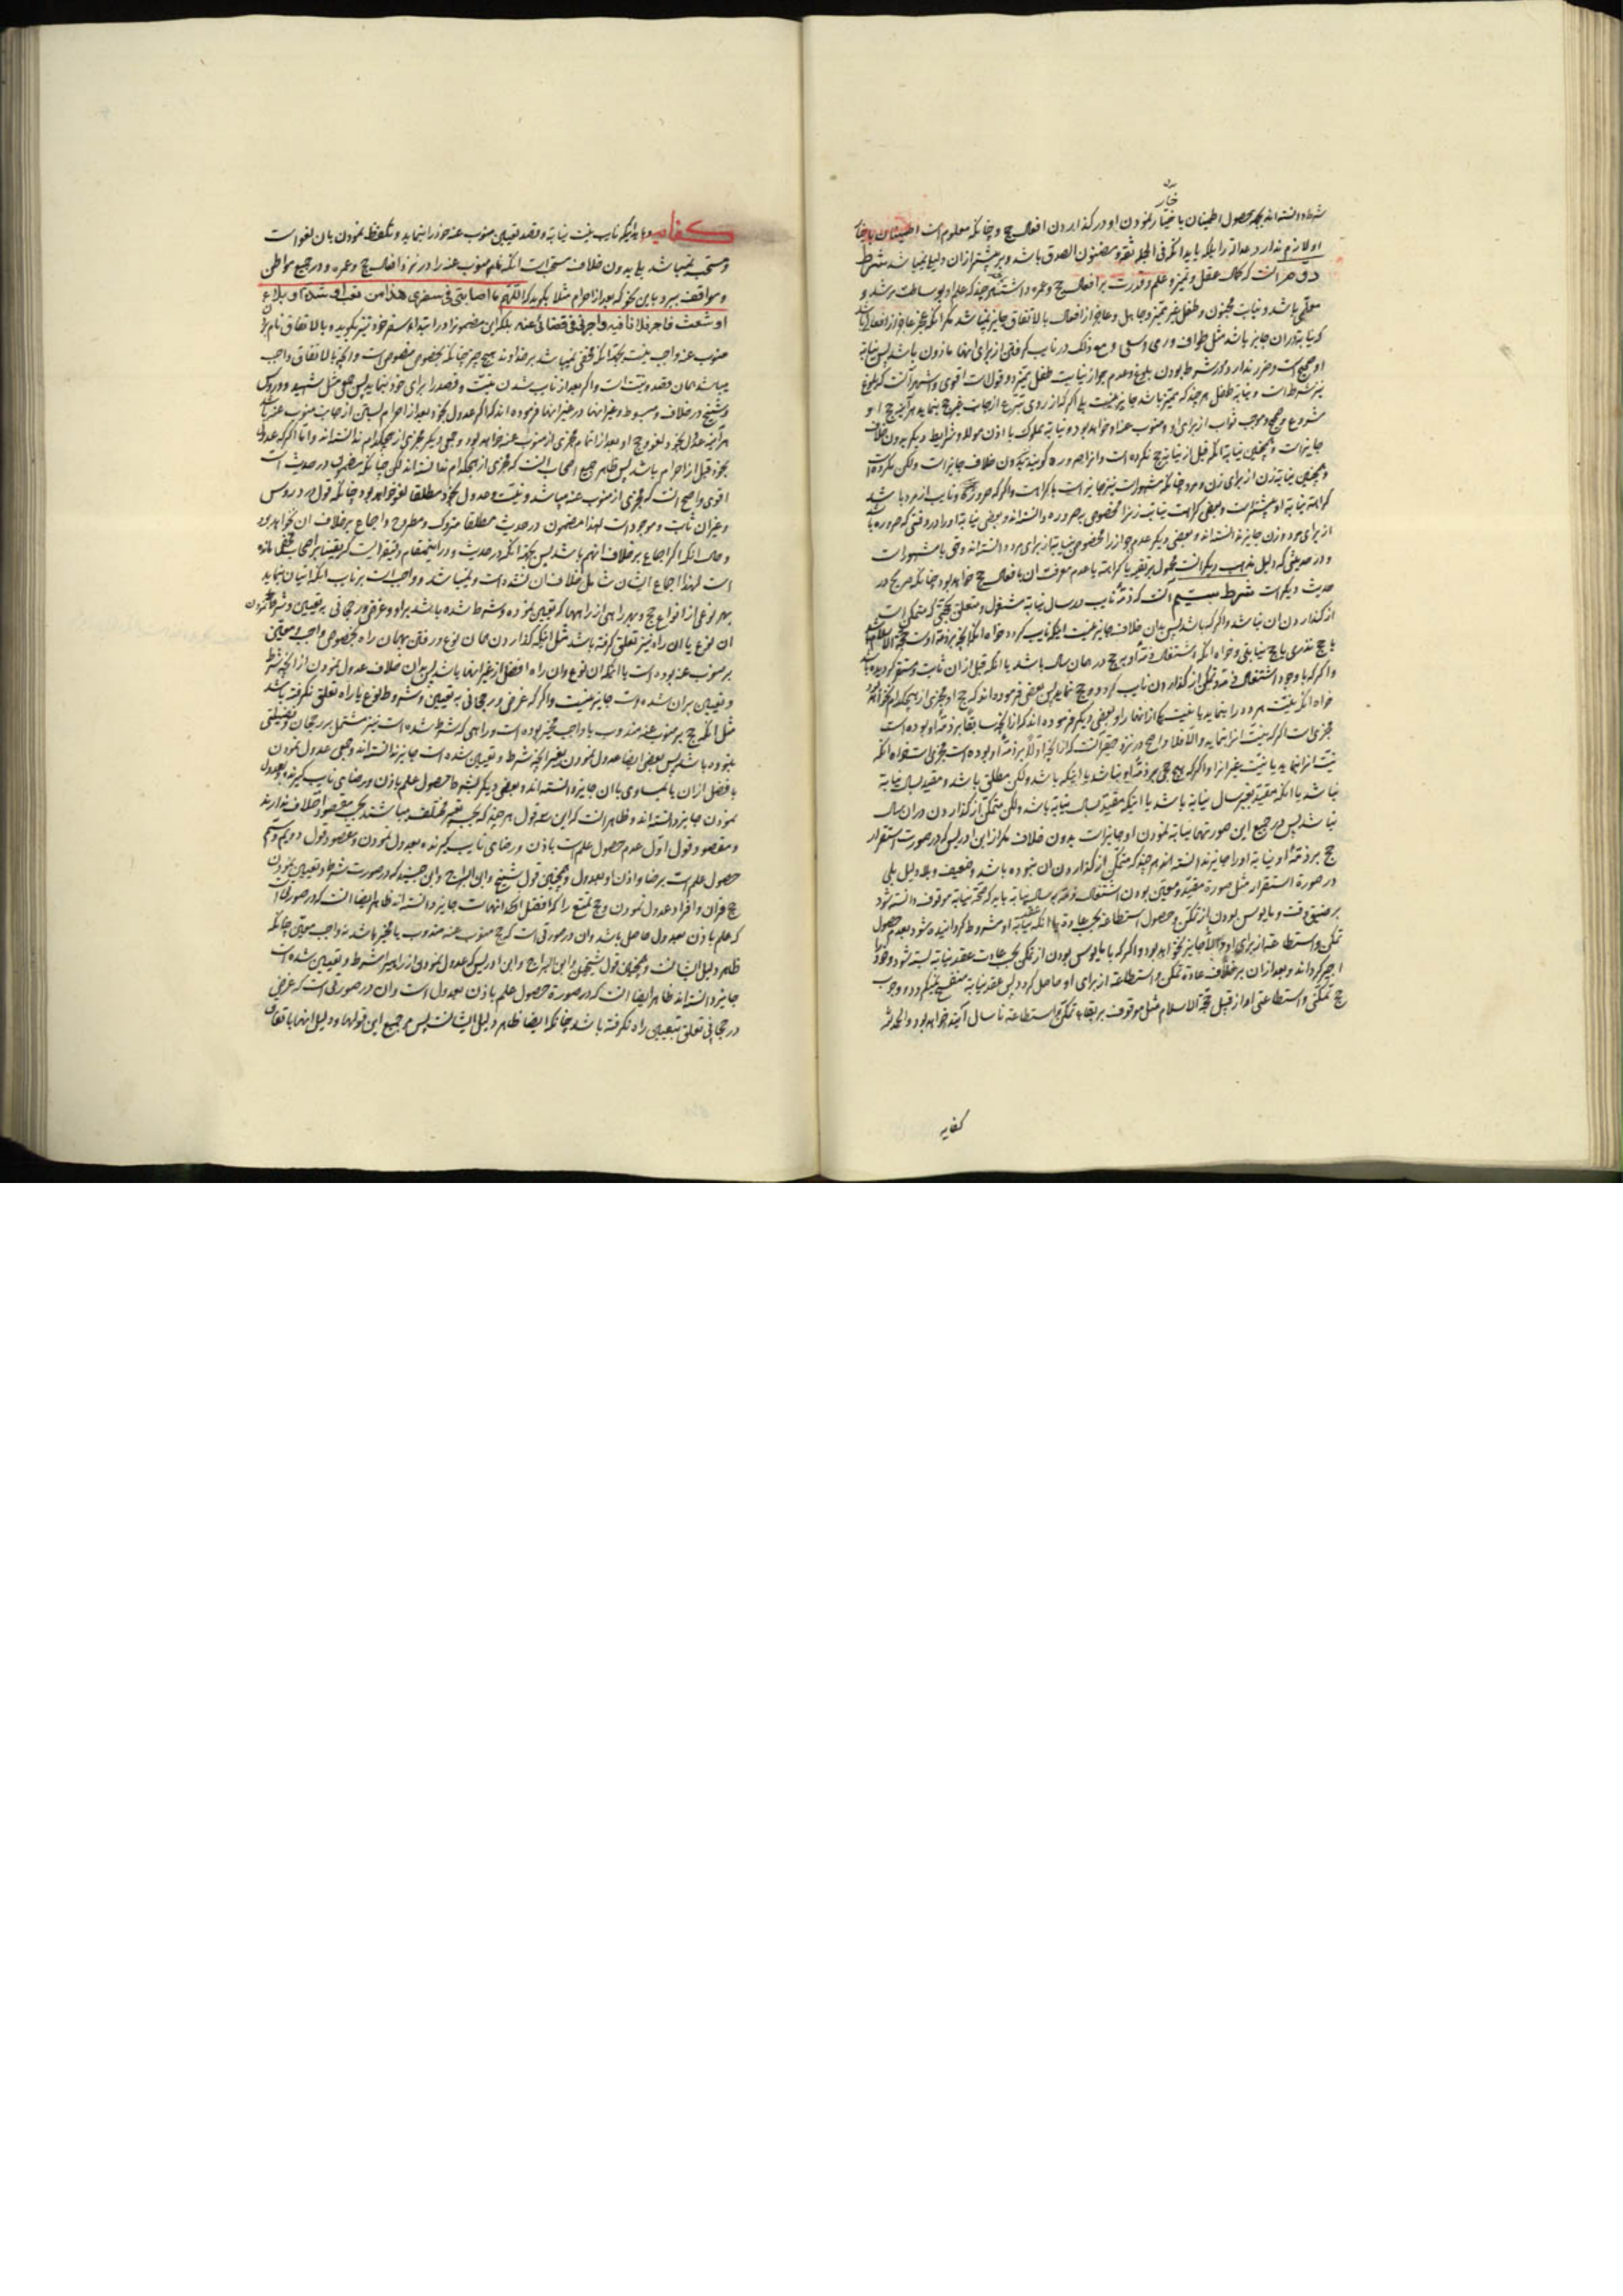 شرط دانسته اند بجهة حصول اطمینان باختیار نمودن او در گذاردن افعال حج و چنانکه معلوم است اطمینان
او لازم ندارد عدالة را بلکه باید آنکه فی الجمله ثقه و مضنون الصدق باشد و پیشتر از ان دلیل نمیباشد شرط
دوم آنست که کمال عقل و تمیز و علم و قدرت بر افعال حج و عمره داشته هر چند که علم او بوساطت مرشد و
معلمی باشد و نیابت مجنون و طفل غیر ممیز و جاهل و عاجز از افعال بالاتفاق جایز نمیباشد مگر آنکه عجز عاجز از افعالی
که نیابة در ان جایز باشد مثل طواف و رمی و سعی و مع ذلک در نایب گرفتن از برای آنها ماذون باشد پس نیابة
او صحیح است و ضرر ندارد و در شرط بودن بلوغ و عدم جواز نیابت طفل ممیز دو قول است اقوی و اشهر آنست که بلوغ
نیز شرط است و نیابة طفل هر چند که ممیز باشد جایز نیست بلی اگر که از روی تبرع از جانب غیر حج بنماید هر آینه حج او
مشروع و صحیح و موجب ثواب از برای او و منوب عنه او خواهد بود و نیابة مملوک با اذن مولا و شرایط دیگر بدون خلاف
جایز است و همچنین نیابة آنکه قبل از نیابة حج نکرده است و انرا صروره گویند بدون خلاف جایز است ولکن مکروه است
و همچنین نیابة زن از برای زن و مرد چنانکه مشهور است نیز جایز است با کراهت و اگر که صروره و نایب از مرد باشد
کراهة نیابة او بیشتر است و بعضی کراهت نیابت زنرا مخصوص بصروره دانسته اند و بعضی نیابة او را در وقتی که صروره باشد
از برای مرد و زن جایز ندانسته اند و بعضی دیگر عدم جواز را مخصوص نیابة از برای مرد دانسته اند و حق با مشهور است
و در حدیثی که دلیل مذهب دیگر است محمول بر تقیه یا کراهة یا عدم معرفت ان بافعال حج خواهد بود چنانکه صریح در
حدیث دیگر است شرط سیم آنست که ذمه نایب در سال نیابة مشغول و متعلق بحجی که متمکن است
از گذاردن ان نباشد و اگر که باشد پس بدون خلاف جایز نیست اینکه نایب گردد خواه آنکه آنچه بر ذمه اوست حجة الاسلام باشد
یا حج نذری یا حج نیابتی و خواه آنکه اشتغال ذمه او بحج در همان سال باشد یا آنکه قبل از ان ثابت و مستقر گردیده باشد
و اگر که با وجود اشتغال ذمه و تمکن از گذاردن نایب گردد و حج نماید پس بعضی فرموده اند که حج او مجزی از هیچکدام نخواهد بود
خواه آنکه نیت هر دو را بنماید یا نیت یکی از آنها را و بعضی دیگر فرموده اند که از آنچه سابقا بر ذمه او بوده است
مجزی است اگر که نیت انرا بنماید والا فلا و اصح در نزد حقیر آنست که از آنچه اولا بر ذمه او بوده است مجزی است خواه آنکه
نیت انرا بنماید یا نیت غیر انرا و اگر که هیچ حجی بر ذمه او نباشد یا اینکه باشد ولکن مطلق باشد و مقید بسال نیابة
نباشد یا آنکه مقید بغیر سال نیابة باشد یا اینکه مقید بسال نیابة باشد ولکن متمکن از گذاردن در ان سال
نباشد پس در جمیع این صورتها نیابة نمودن او جایز است بدون خلاف مگر از ابن ادریس که در صورت استقرار
حج بر ذمه او نیابة او را جایز ندانسته اند هر چند که متمکن از گذاردن ان نبوده باشد و ضعیف و بلا دلیل بلی
در صورة استقرار مثل صورة مقید و معین بودن اشتغال ذمه بسال نیابة باید که صحة نیابة موقوف دانسته شود
بر ضیق وقت و مایوس بودن از تمکن و حصول استطاعة بحسب عادة یا آنکه عقد نیابة او مشروط گردانیده شود بعدم حصول
تمکن و استطاعة از برای او والا جایز نخواهد بود و اگر که با مایوس بودن از تمکن بحسب عادت عقد نیابة بسته شود و خود را
اجیر گرداند و بعد از ان بر خلاف عادة تمکن و استطاعة از برای او حاصل گردد پس عقد نیابة منفسخ نمیگردد و وجوب
حج تمکنی و استطاعتی او از قبیل حجة الاسلام مثل موقوف بر بقاء تمکن و استطاعة تا سال آینده خواهد بود والحمد لله
کفایه
کفایه و باید اینکه نایب نیت نیابة و قصد تعیین منوب عنه خود را بنماید و تلفظ نمودن بان لغو است
و مستحب نمیباشد بلی بدون خلاف مستحب است آنکه نام منوب عنه را در نزد افعال حج و عمره و در جمیع مواطن
و مواقف ببرد باین نحو که بعد از احرام مثلا بگوید که اللهم ما اصابنی فی سفری هذا من تعب او شدة او بلاء
او شعث فاجر فلانا فیه واجرنی فی قضائی عنه بلکه این مضمونرا در ابتداء سفر خود نیز بگوید و بالاتفاق نام بردن
منوب عنه واجب نیست بجهة آنکه مخفی نمیباشد بر خداوند هیچ چیز چنانکه بخصوص منصوص است و آنچه بالاتفاق واجب
میباشد همان قصد و نیت است و اگر بعد از نایب شدن نیت و قصد را برای خود بنماید پس جمعی مثل شهید در دروس
و شیخ در خلاف و مبسوط و غیر آنها در غیر آنها فرموده اند که اگر عدول بخود بعد از احرام بستن از جانب منوب عنه باشد
هر آینه عدول بخود لغو و حج او بعد از اتمام مجزی از منوب عنه خواهد بود و جمعی دیگر مجزی از هیچکدام ندانسته اند و اما اگر که عدول
بخود قبل از احرام باشد پس ظاهر جمیع اصحاب آنست که مجزی از هیچکدام ندانسته اند لکن چنانکه مضمون در حدیث است
اقوی و اصح آنست که مجزی از منوب عنه میباشد و نیت و عدول بخود مطلقا لغو خواهد بود چنانکه قول در دروس
و غیر ان ثابت و موجود است لهذا مضمون در حدیث مطلقا متروک و مطروح و اجماع بر خلاف ان نخواهد بود
و حال آنکه اگر اجماع بر خلاف انهم باشد پس بجهة آنکه در حدیث و در اینمقام دقیقه ایست که یقینا بر اصحاب مخفی مانده
است لهذا اجماع ایشان شامل خلاف ان نشده است و نمیباشد و واجب است بر نایب اینکه اتیان بنماید
بهر نوعی از انواع حج و بهر راهی از راهها که تعیین نموده و شرط شده باشد بر او و غرض و رجحانی به تعیین و شرط نمودن
ان نوع یا ان راه نیز تعلق گرفته باشد مثل اینکه گذاردن همان نوع و رفتن بهمان راه بخصوص واجب معینی
بر منوب عنه بوده است یا آنکه ان نوع و ان راه افضل از غیر آنها باشد پس بدون خلاف عدول نمودن از آنچه شرط
و تعیین بران شده است جایز نیست و اگر که غرض و رجحانی به تعیین و شرط نوع یا راه تعلق نگرفته باشد
مثل آنکه حج بر منوب عنه مندوب یا واجب مخیر بوده است و راهی که شرط شده است نیز مشتمل بر رجحان و فضیلتی
نبوده باشد پس بعضی ایضا عدول نمودن بغیر آنچه شرط و تعیین شده است جایز ندانسته اند و جمعی عدول نمودن
بافضل از ان یا بمساوی با ان جایز دانسته اند و بعضی دیگر بشرط حصول علم باذن و رضای نایب گیرنده بعدول
نمودن جایز دانسته اند و ظاهر آنست که این سه قول هر چند که بحسب تعبیر مختلف میباشند بحسب مقصود اختلاف ندارند
و مقصود قول اول عدم حصول علم است باذن و رضای نایب گیرنده بعدول نمودن و مقصود قول دویم و سیم
حصول علم است برضا و اذن او بعدول و همچنین قول شیخ و ابن البراج و ابن جنید که در صورت شرط و تعیین نمودن
حج قران و افراد عدول نمودن بحج تمتع را که افضل از آنهاست جایز دانسته اند ظاهر ایضا آنست که در صورتی است
که علم باذن بعدول حاصل باشد و ان در صورتی است که حج منوب عنه مندوب یا مخیر باشد نه واجب معین چنانکه
ظاهر دلیل ایشانست و همچنین قول شیخین و ابن البراج و ابن ادریس که عدول نمودن از راهیرا شرط و تعیین شده است
جایز دانسته اند ظاهر ایضا آنست که در صورة حصول علم باذن بعدول است و ان در صورتی است که غرض
و رجحانی تعلق بتعیین راه نگرفته باشد چنانکه ایضا ظاهر دلیل ایشانست پس مرجع جمیع این قولها و دلیل آنها باتفاق